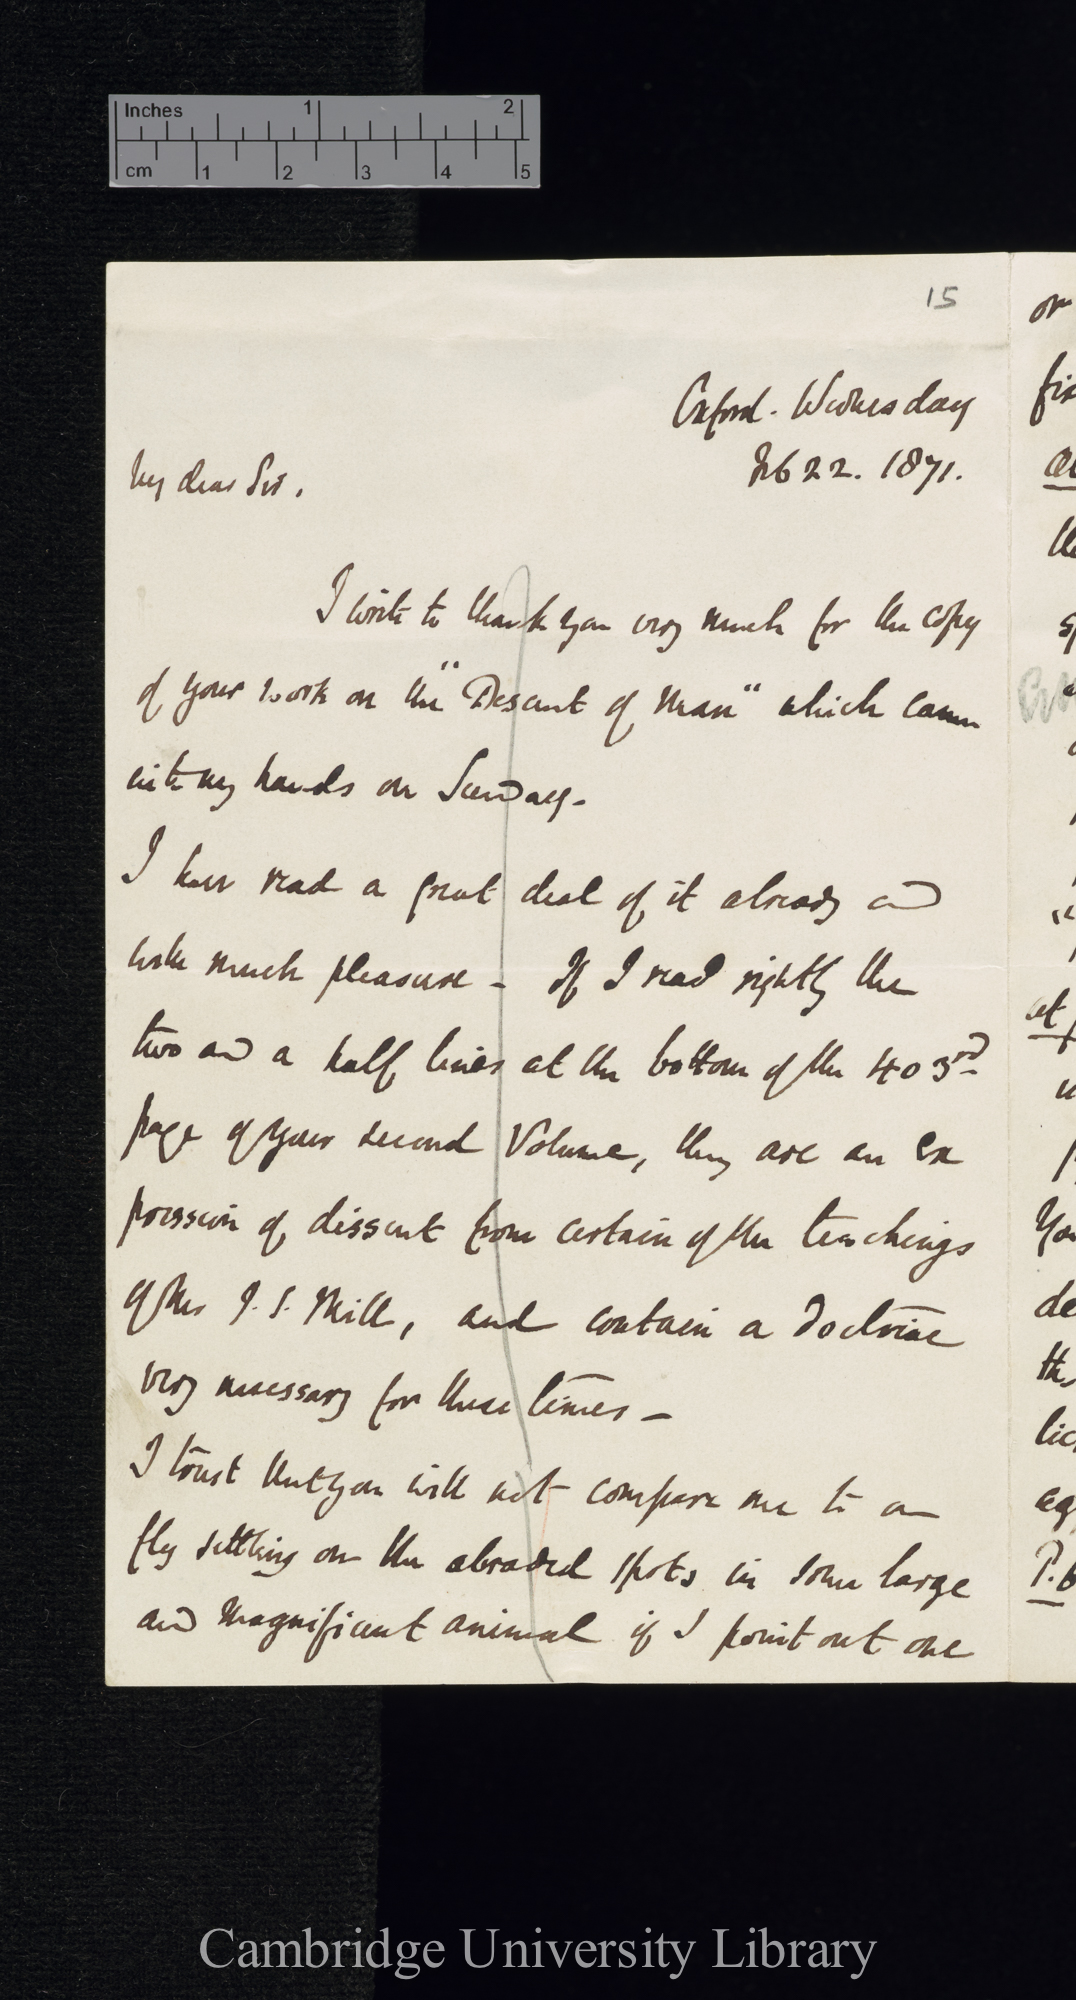 Inches 1 2
cm 1 2 3 4 5
15
Oxford. Wednesday
Feb 22. 1871.
My dear Sir,
I write to thank you very much for the copy
of your work on the "Descent of Man" which came
into my hands on Sunday.
I have read a great deal of it already and
with much pleasure – If I read rightly the
two and a half lines at the bottom of the 403rd
page of your second Volume, they are an ex
pression of dissent from certain of the teachings
of Mr J. S. Mill, and contain a doctrine
very necessary for these times –
I trust that you will not compare me to a
fly settling on the abraded spots in some large
and magnificent animal if I point out one
or
at
You
de
P. 6
Cambridge University Library